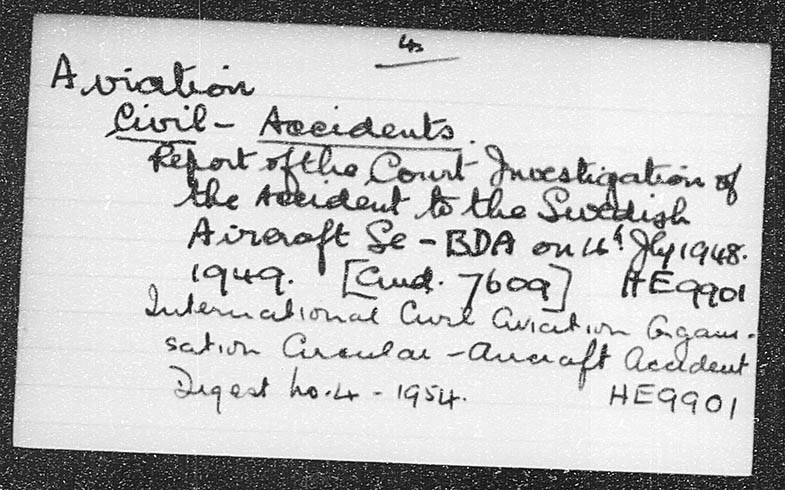 4
Aviation
Civil - Accidents.
Report of the Court Investigation of
the Accident to the Swedish
Aircraft Se - BDA on 4th Jly 1948.
1949. [Cmd. 7609] HE9901
International Civil Aviation Organi-
sation Circular - Aircraft Accident
Digest no. 4 - 1954. HE9901